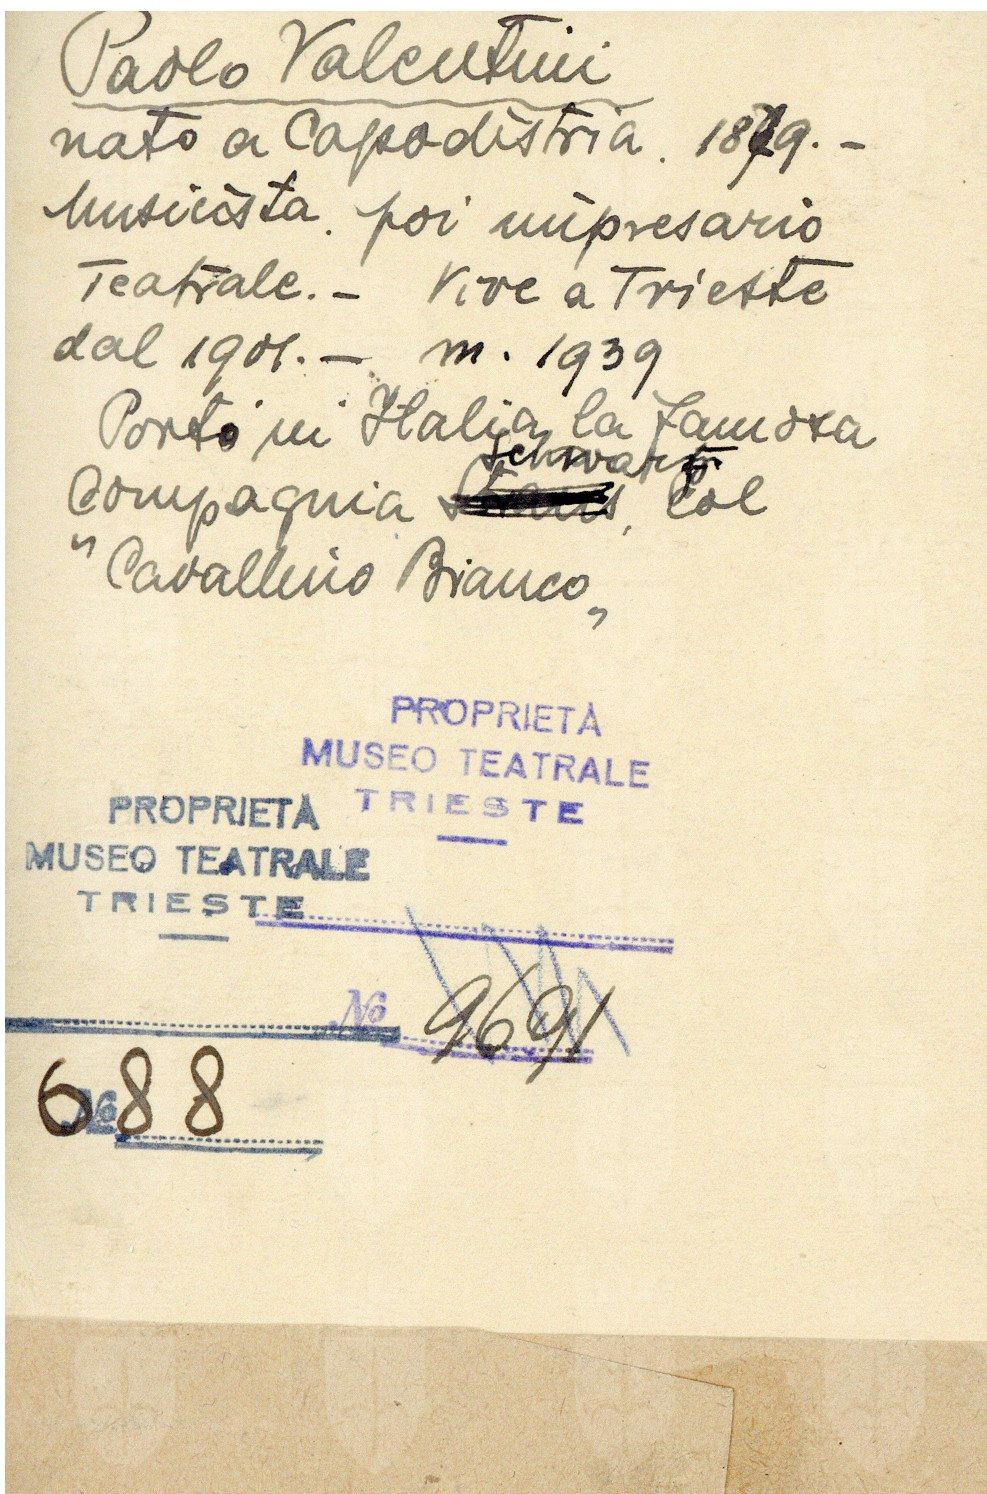 Paolo Valentini
nato a Capodistria. 1879. –
Musicista. poi impresario
Teatrale. – Vive a Trieste
dal 1901. – m. 1939
Portò in Italia la famosa
Schwartz
Compagnia, Col
"Cavallino Bianco„
PROPRIETÀ
MUSEO TEATRALE
TRIESTE
PROPRIETÀ
MUSEO TEATRALE
TRIESTE
No 9691
No 688